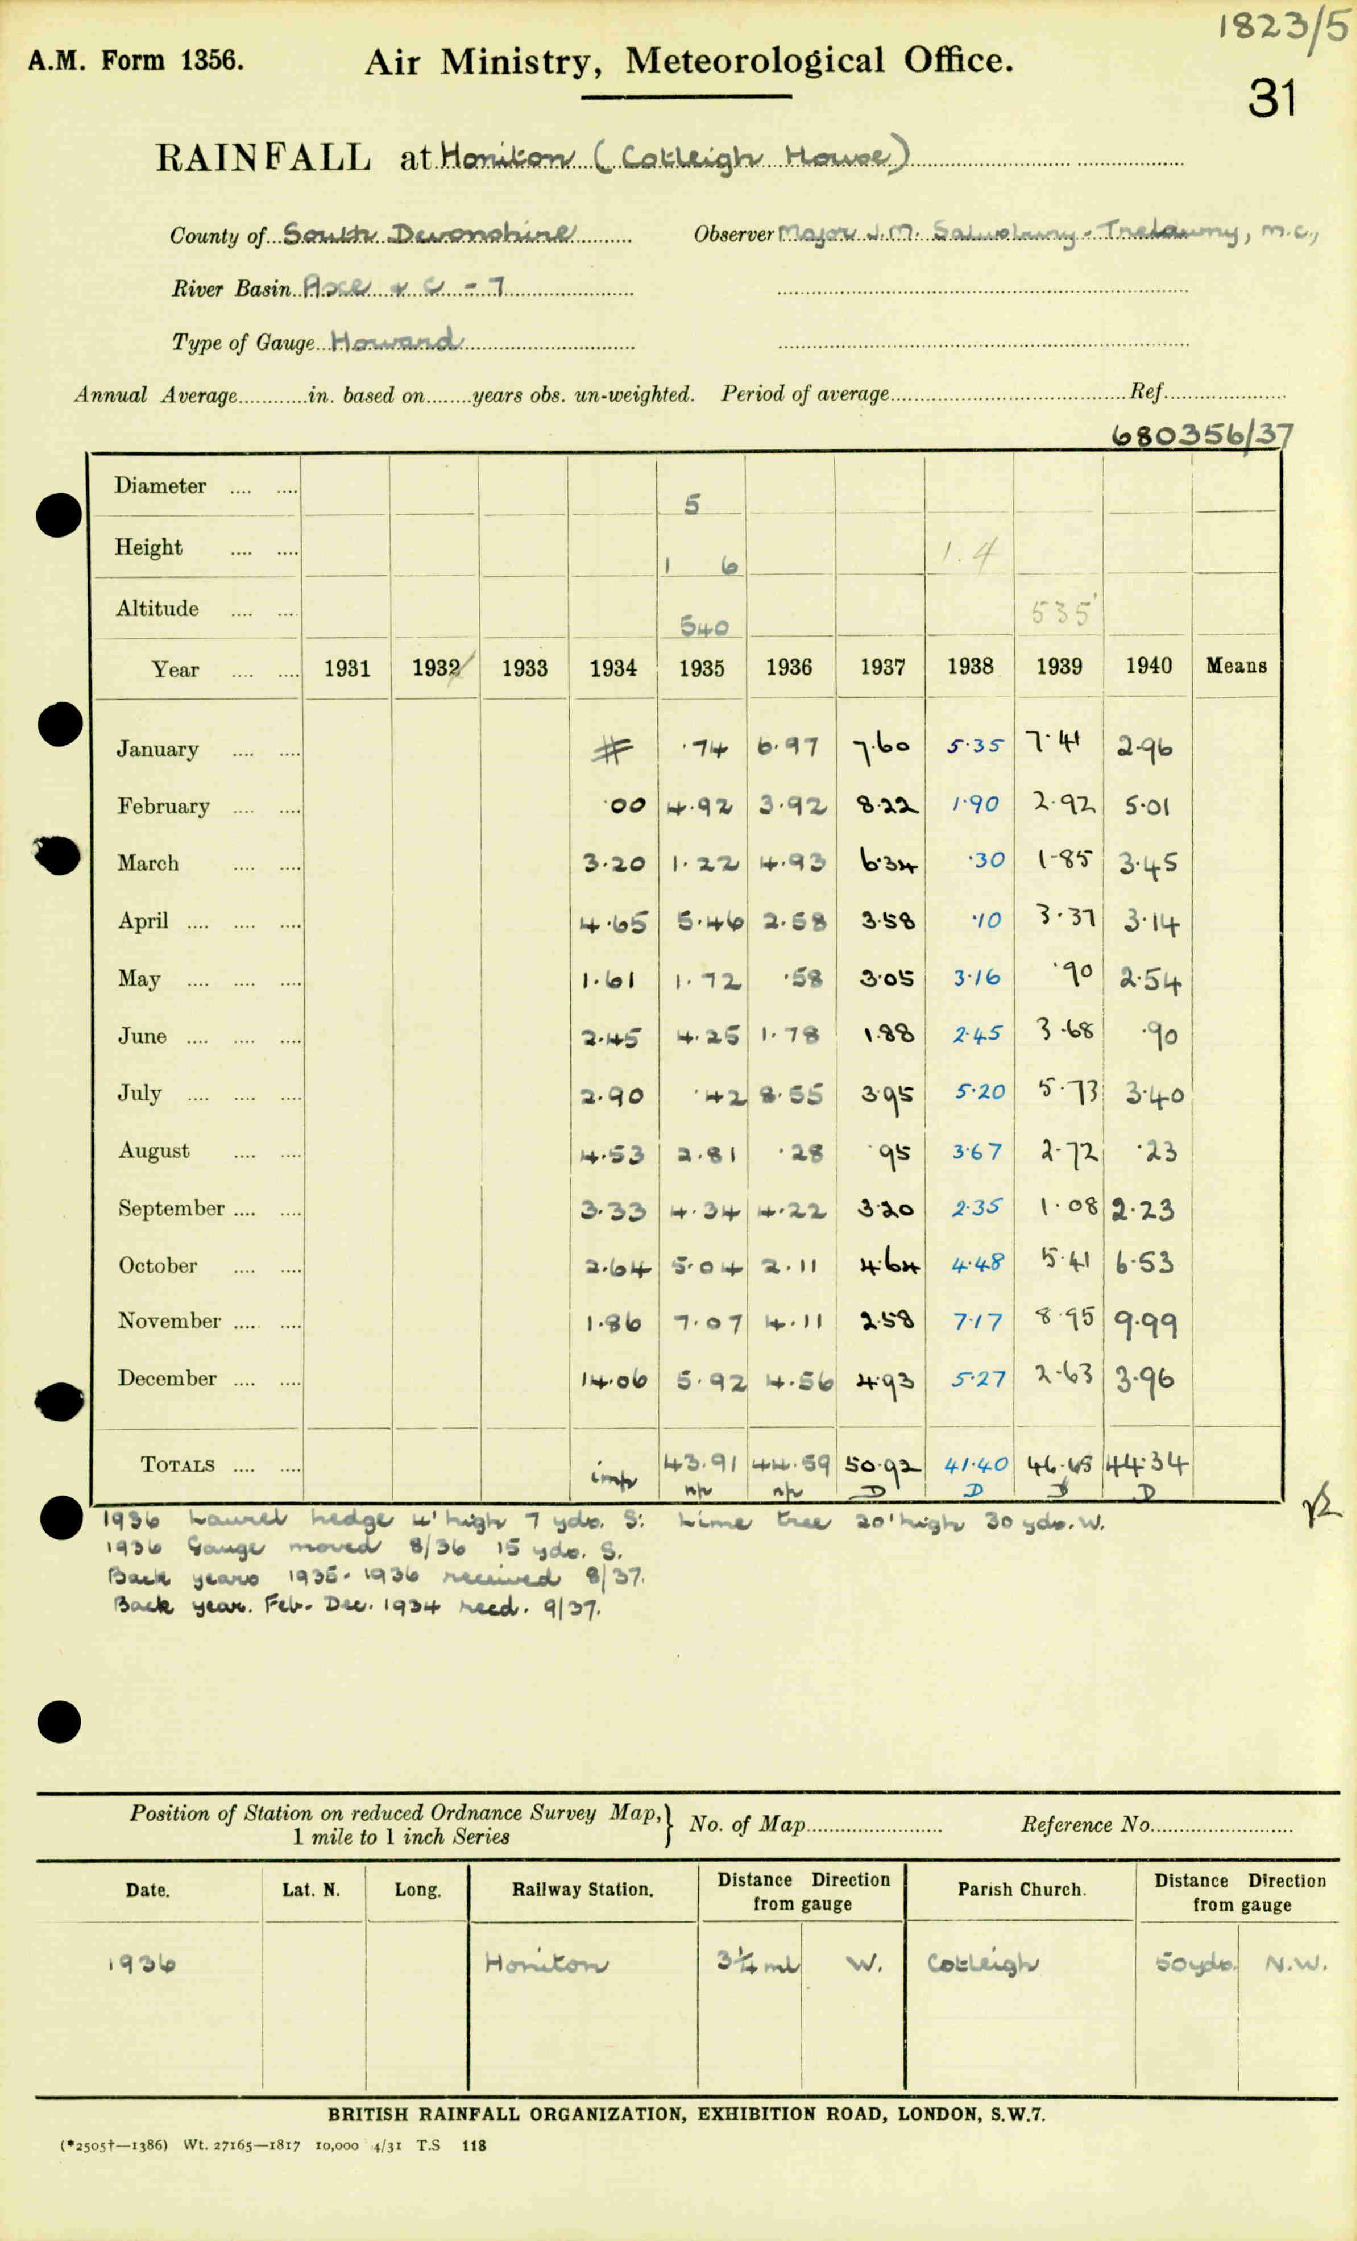 1823/5
A.M. Form 1356. Air Ministry, Meteorological Office.
31
RAINFALL at Honiton (Cotleigh House)
County of South Devonshire Observer Major J.M. Salusbury-Trelawny, M.C.,
River Basin Axe & C - 7
Type of Gauge Howard
Annual Average............in. based on........years obs. un-weighted. Period of average.................... Ref....................
680356/37
Diameter .... .... 5
Height .... .... 1 6 1.4
Altitude .... .... 540 535'
Year .... .... 1931 1932 1933 1934 1935 1936 1937 1938 1939 1940 Means
January .... .... # .74 6.97 7.60 5.35 7.41 2.96
February .... .... .00 4.92 3.92 8.22 1.90 2.92 5.01
March .... .... 3.20 1.22 4.93 6.34 .30 1.85 3.45
April .... .... .... 4.65 5.46 2.58 3.58 .10 3.37 3.14
May .... .... .... 1.61 1.72 .58 3.05 3.16 .90 2.54
June .... .... .... 2.45 4.25 1.78 1.88 2.45 3.68 .90
July .... .... .... 2.90 .42 8.55 3.95 5.20 5.73 3.40
August .... .... 4.53 2.81 .28 .95 3.67 2.72 .23
September .... .... 3.33 4.34 4.22 3.20 2.35 1.08 2.23
October .... .... 2.64 5.04 2.11 4.64 4.48 5.41 6.53
November .... .... 1.86 7.07 4.11 2.58 7.17 8.95 9.99
December .... .... 14.06 5.92 4.56 4.93 5.27 2.63 3.96
TOTALS .... .... imp 43.91 44.59 50.92 41.40 46.65 44.34
np np D D D D
1936 Laurel hedge 4' high 7 yds. S: Lime tree 20' high 30 yds. W.
1936 Gauge moved 8/36 15 yds. S.
Back years 1935-1936 received 8/37.
Back year. Feb- Dec. 1934 recd. 9/37.
Position of Station on reduced Ordnance Survey Map,} No. of Map........................ Reference No.........................
1 mile to 1 inch Series
Date. Lat. N. Long. Railway Station. Distance Direction from gauge Parish Church. Distance Direction from gauge
1936 Honiton 3¼ ml W. Cotleigh 50 yds. N.W.
BRITISH RAINFALL ORGANIZATION, EXHIBITION ROAD, LONDON, S.W.7.
(*2505†—1386) Wt. 27165—1817 10,000 4/31 T.S 118